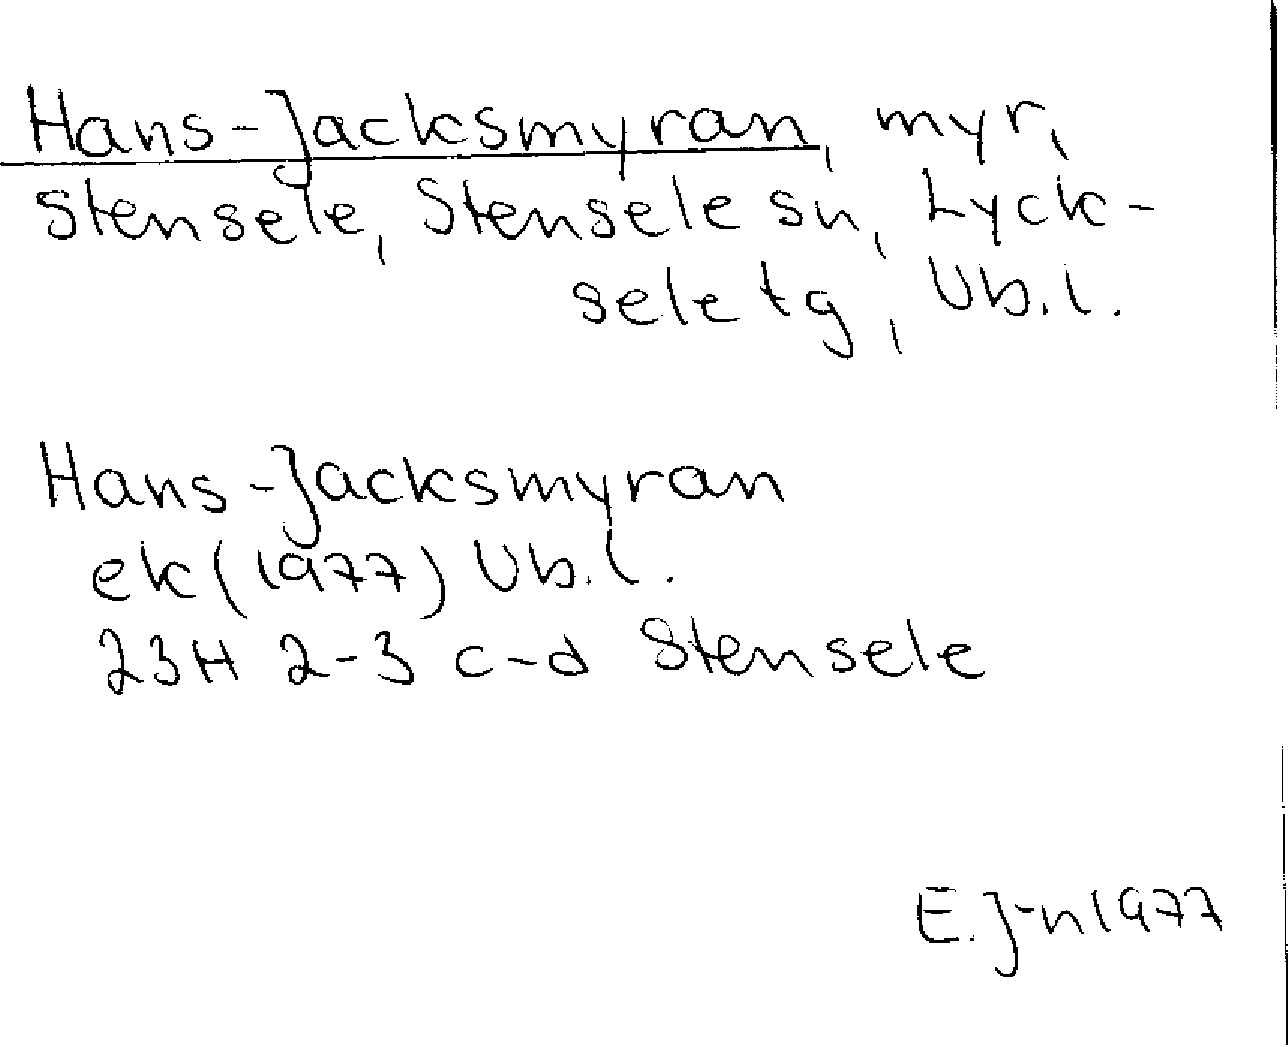 Hans-Jacksmyran, myr,
Stensele, Stensele sn, Lyck-
sele tg, Vb.l.
Hans-Jacksmyran
ek(1977) Vb.l.
23H 2-3 c-d Stensele
E.J-n 1977